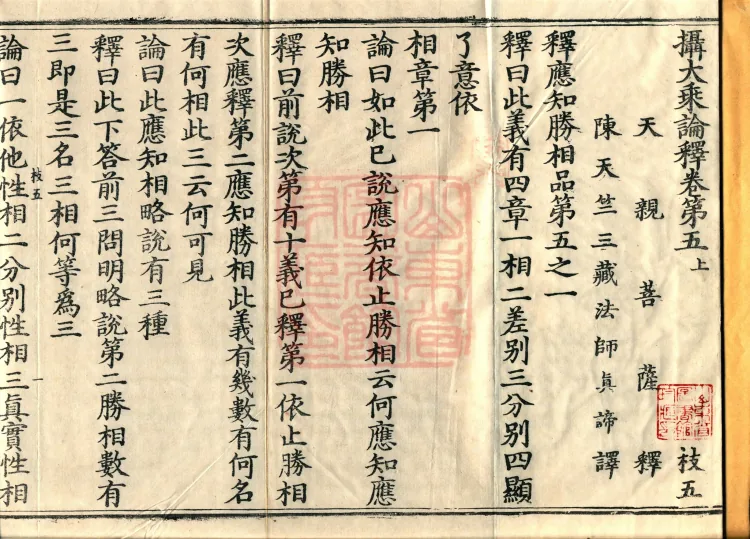 攝大乘論釋卷第五上 枝五
天親菩薩釋
陳天竺三藏法師眞諦譯
釋應知勝相品第五之一
釋曰此義有四章一相二差别三分别四顯
了意依
相章第一
論曰如此已說應知依止勝相云何應知應
知勝相
釋曰前說次第有十義已釋第一依止勝相
次應釋第二應知勝相此義有幾數有何名
有何相此三云何可見
論曰此應知相略說有三種
釋曰此下答前三問明略說第二勝相數有
三即是三名三相何等爲三
枝五 一
論曰一依他性相二分别性相三眞實性相